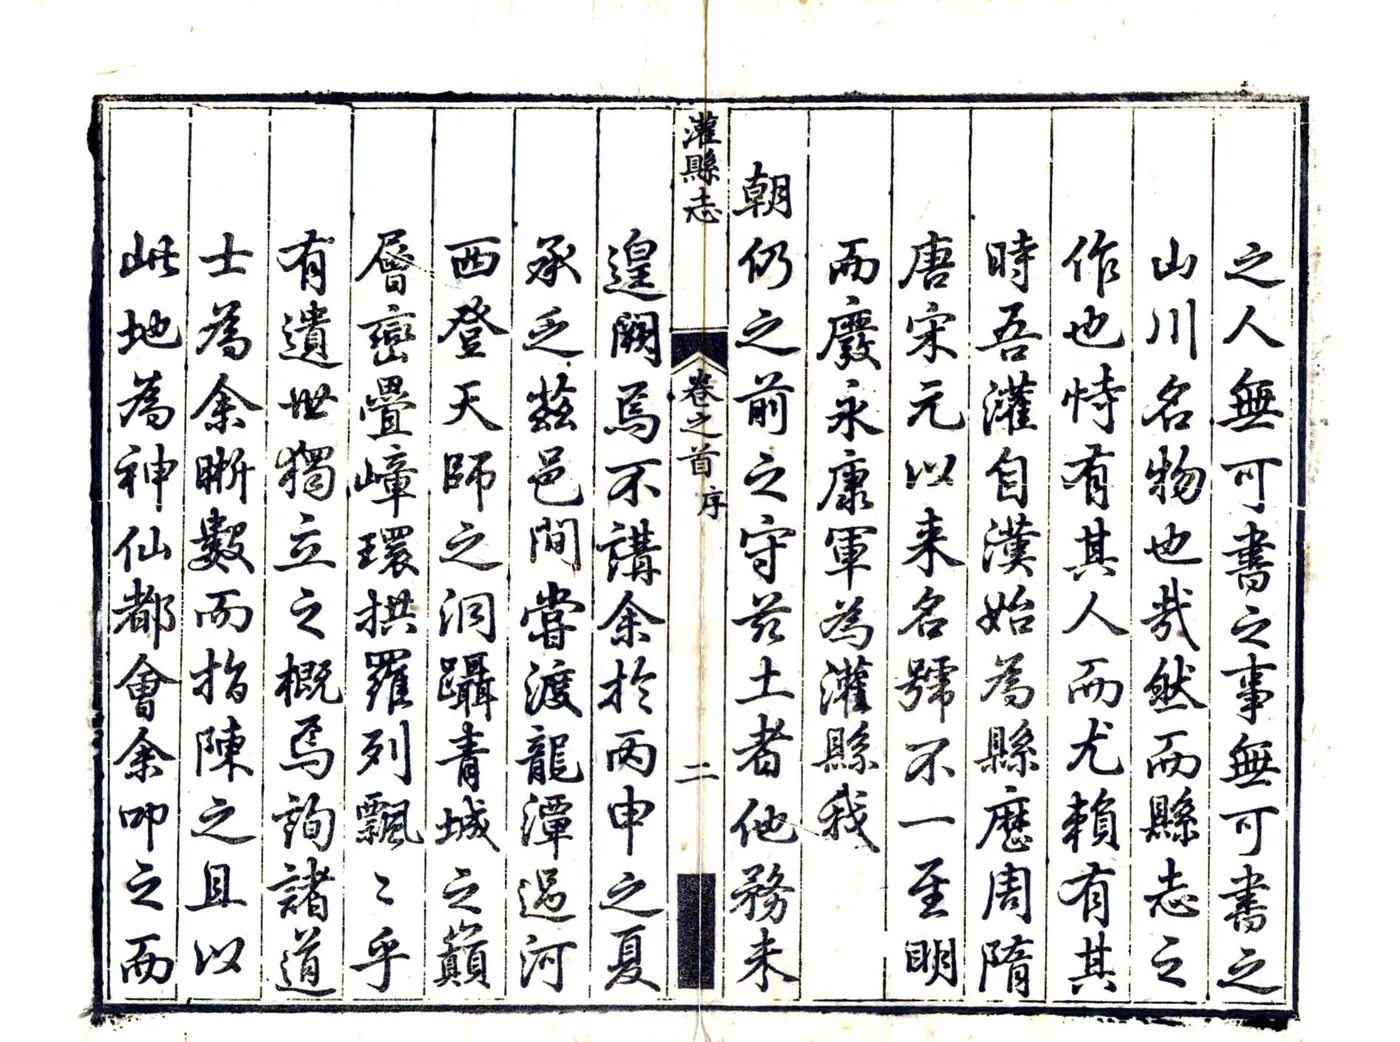 之人無可書之事無可書之
山川名物也哉然而縣志之
作也恃有其人而尤賴有其
時吾灌自漢始為縣歷周隋
唐宋元以来名號不一至明
而廢永康軍為灌縣我
朝仍之前之守茲土者他務未
灌縣志
卷之首 序
二
遑闕焉不講余於丙申之夏
承乏茲邑間嘗渡龍潭過河
西登天師之洞躡青城之巔
層巒疊嶂環拱羅列飄〻乎
有遺世獨立之概焉詢諸道
士為余晰數而指陳之且以
此地為神仙都會余叩之而